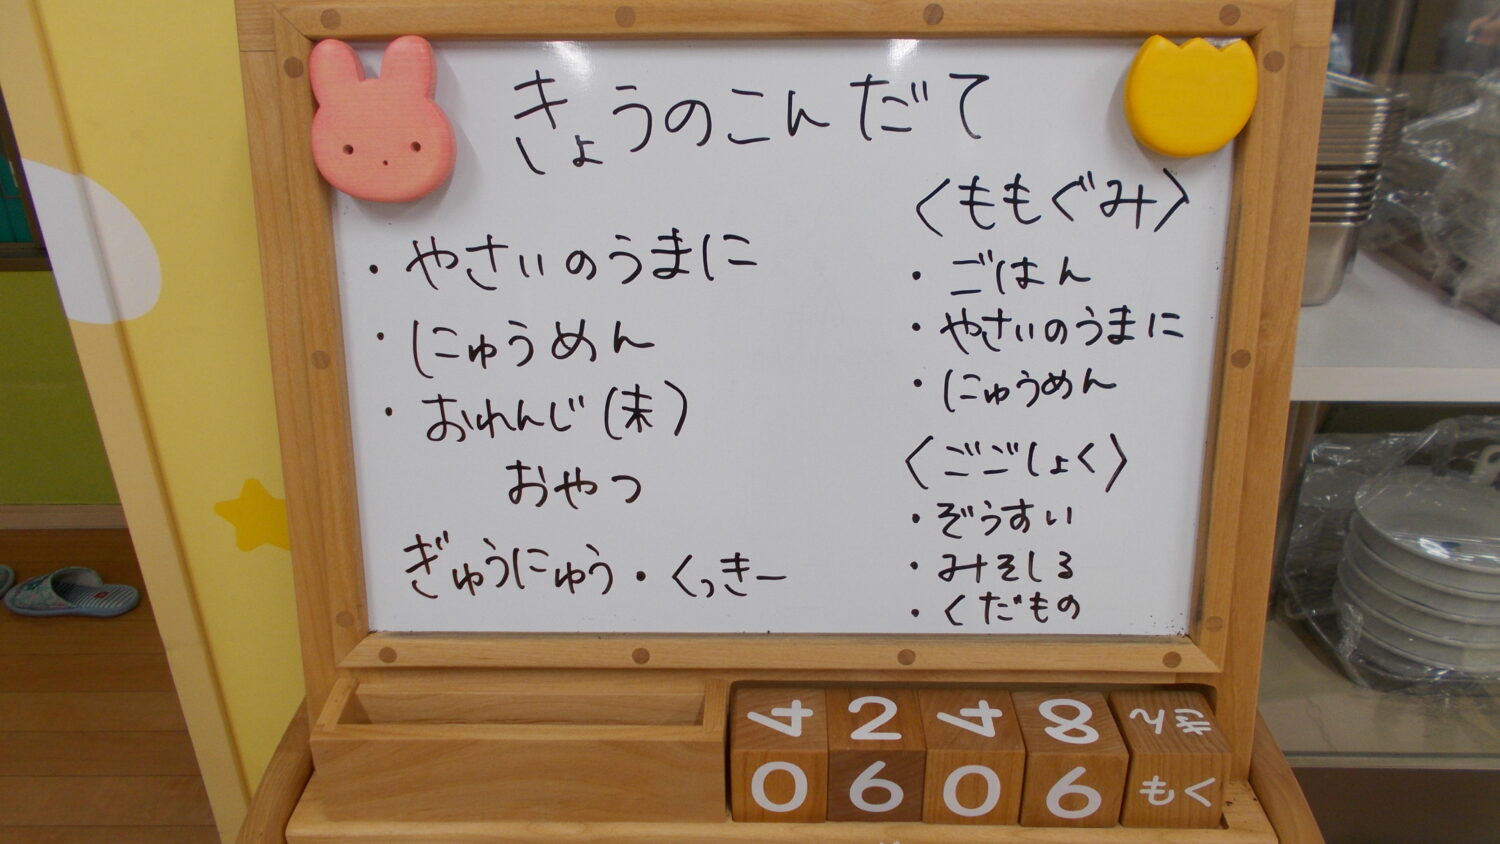 きょうのこんだて
・やさいのうまに
・にゅうめん
・おれんじ(末)
おやつ
ぎゅうにゅう・くっきー
〈ももぐみ〉
・ごはん
・やさいのうまに
・にゅうめん
〈ごごしょく〉
・ぞうすい
・みそしる
・くだもの
4 2 4 8
0 6 0 6 もく